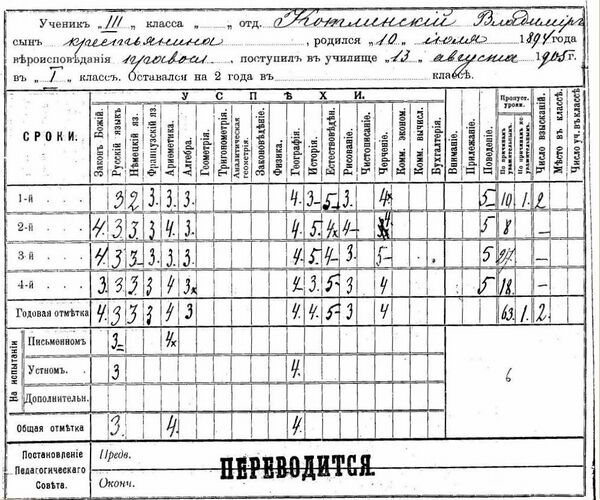 Ученикъ III класса „ — „ отд. Котлинскій Владиміръ
сынъ крестьянина, родился 10 іюля 1894 года
вѣроисповѣданія правосл. поступилъ въ училище 13 августа 1905 г.
въ „I„ классъ. Оставался на 2 года въ классѣ.
УСПѢХИ.
СРОКИ.
Законъ Божій.
Русскій языкъ
Нѣмецкій яз.
Французскій яз.
Ариѳметика.
Алгебра.
Геометрія.
Тригонометрія.
Аналитическая геометрія.
Законовѣдѣніе.
Физика.
Географія.
Исторія.
Естествовѣдѣн.
Рисованіе.
Чистописаніе.
Черченіе.
Комм. эконом.
Комм. вычисл.
Бухгалтерія.
Вниманіе.
Прилежаніе.
Поведеніе.
Пропущ. уроки.
По причинамъ уважительнымъ.
По причинамъ не уважительнымъ.
Число взысканій.
Мѣсто въ классѣ.
Число уч. въ классѣ
1-й . . . . 3 2 3. 3. 3. 4. 3- 5- 3. 4x 5- 10. 1. 2
2-й . . . . 4. 3 3. 3 4. 3. 4. 5. 4x 4- 4 5 8 —
3-й . . . . 4. 3 3- 3. 3. 3. 4. 5. 4- 3. 5- 5 27. —
4-й . . . . 3. 3. 3. 3 4 3x 4- 3. 5- 3 4 5 18. —
Годовая отмѣтка 4. 3 3 3 4 3 4. 4. 5 3 4 63. 1. 2.
На испытаніи
Письменномъ 3- 4x
Устномъ. 3 4.
Дополнительн.
6
Общая отмѣтка 3. 4. 4.
Постановленіе Педагогическаго Совѣта.
Предв.
ПЕРЕВОДИТСЯ.
Оконч.